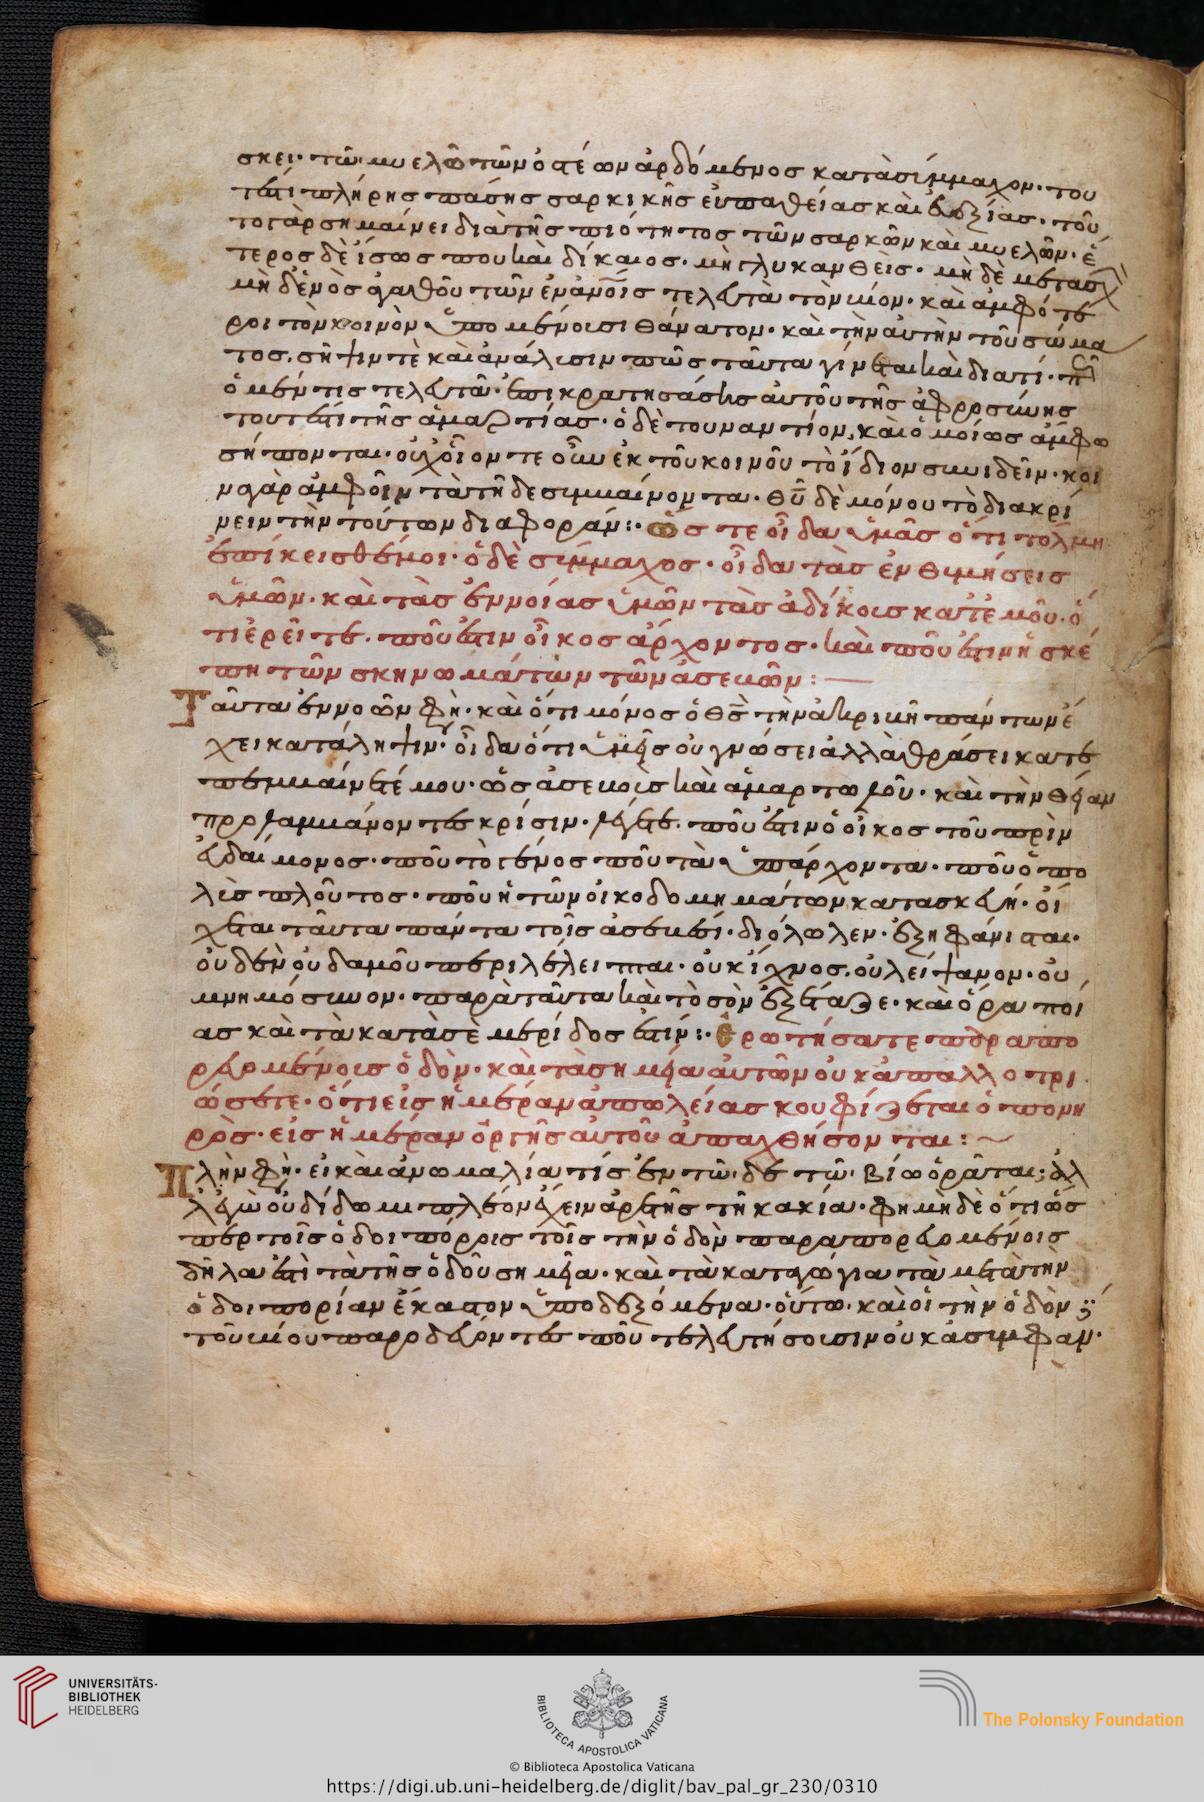 σκει· τῶ μυελῶ τῶν ὀστέων ἀρδόμενος κατὰ σύμμαχον· του
τέστι πλήρης πάσης σαρκικῆς εὐπαθείας καὶ εὐεξίας· τοῦ
το γὰρ σημαίνει διὰ τῆς πιότητος τῶν σαρκῶν καὶ μυελῶν· ἕ
τερος δὲ ἴσως που καὶ δίκαιος· μὴ γλυκανθεὶς· μὴ δὲ μετασχ
μὴ δενὸς ἀγαθοῦ τῶν ἐν ἀνοις τελευτᾶ τὸν βίον· καὶ ἀμφότε
ροι τὸν κοινὸν ὑπομένουσι θάνατον· καὶ τὴν αὐτὴν τοῦ σώμα
τος, σῆψιν τὲ καὶ ἀνάλυσιν πῶς ταῦτα γίνεται καὶ διατί·
ὁ μέν τις τελευτᾶ· ἐπικρατησάσης αὐτοῦ τῆς ἀφροσύνης
τουτέστι τῆς ἁμαρτίας· ὁ δὲ τουναντίον, καὶ ὁμοίως ἄμφω
σήπονται· οὐχ οἷον τε οὖν ἐκ τοῦ κοινοῦ τὸ ἴδιον συνιδεῖν· κοι
νὰ γὰρ ἀμφοῖν τὰ τῆ δε συμβαίνοντα· θυ δὲ μόνου τὸ διακρί
νειν τὴν τούτων διαφοράν:· ὥς τε οἶδα ὑμᾶς ὅτι τόλμη
ἐπίκεισθέ μοι· ὁ δὲ σύμμαχος· οἶδα τὰς ἐνθυμήσεις
ὑμῶν· καὶ τὰς ἐννοίας ὑμῶν τὰς ἀδίκους κατ' ἐμοῦ· ὅ
τι ἐρεῖτε· ποῦ ἐστιν οἶκος ἄρχοντος· καὶ ποῦ ἐστιν ἡ σκέ
πη τῶν σκηνωμάτων τῶν ἀσεβῶν:
Ταῦτα ἐννοῶν φη· καὶ ὅτι μόνος ὁ θς τὴν ἀκριβῆ πάντων ἔ
χει κατάληψιν· οἶδα ὅτι ὑμεῖς οὐ γνώσει ἀλλὰ θράσει κατε
πεμβαίνετέ μου· ὡς ἀσεβοῦς καὶ ἁμαρτωλοῦ· καὶ τὴν θείαν
προλαμβάνοντες κρίσιν· λέγετε· ποῦ ἐστιν ὁ οἶκος τοῦ πρὶν
εὐδαίμονος· ποῦ τὸ γένος ποῦ τὰ ὑπάρχοντα· ποῦ ὁ πο
λὺς πλοῦτος· ποῦ ἡ τῶν οἰκοδομημάτων κατασκευή· οἴ
χεται ταῦτα πάντα τοῖς ἀσεβέσι· διόλωλεν· ἐξηφάνισται·
οὐδὲν οὐδαμοῦ περιλέλειπται· οὐκ ἴχνος, οὐ λείψανον· οὐ
μνημόσυνον· παρὰ ταῦτα καὶ τὸ σὸν ἐξέταζε· καὶ ὅρα ποί
ας καὶ τὰ κατὰ σὲ μερίδος ἐστίν:· ἐρωτήσατε παραπο
ρευομένους ὁδὸν· καὶ τὰ σημεῖα αὐτῶν οὐκ ἀπαλλοτρι
ώσετε· ὅτι εἰς ἡμέραν ἀπωλείας κουφίζεται ὁ πονη
ρὸς· εἰς ἡμέραν ὀργῆς αὐτοῦ ἀπαχθήσονται:
Πλὴν φη· εἰ καὶ ἀνωμαλία τίς ἐν τῶ δε τῶ βίω ὁρᾶται; ἀλλ
ἐγὼ οὐ δίδωμι πλέον ἔχειν ἀρετῆς τῆ κακία· φημὴ δὲ ὅτι ὥς
περ τοῖς ὁδοιπόροις τοῖς τὴν ὁδὸν παραπορευομένοις
δῆλα ἐστὶ τὰ τῆς ὁδοῦ σημεῖα· καὶ τὰ καταγώγια τὰ μετὰ τὴν
ὁδοιπορίαν ἕκαστον ὑποδεξόμενα· οὕτω καὶ οἱ τὴν ὁδὸν
τοῦ βίου παροδεύοντες ποῦ τελευτήσουσιν οὐκ ἀσυμφαν·
UNIVERSITÄTS-
BIBLIOTHEK
HEIDELBERG
BIBLIOTECA APOSTOLICA VATICANA
The Polonsky Foundation
© Biblioteca Apostolica Vaticana
https://digi.ub.uni-heidelberg.de/diglit/bav_pal_gr_230/0310